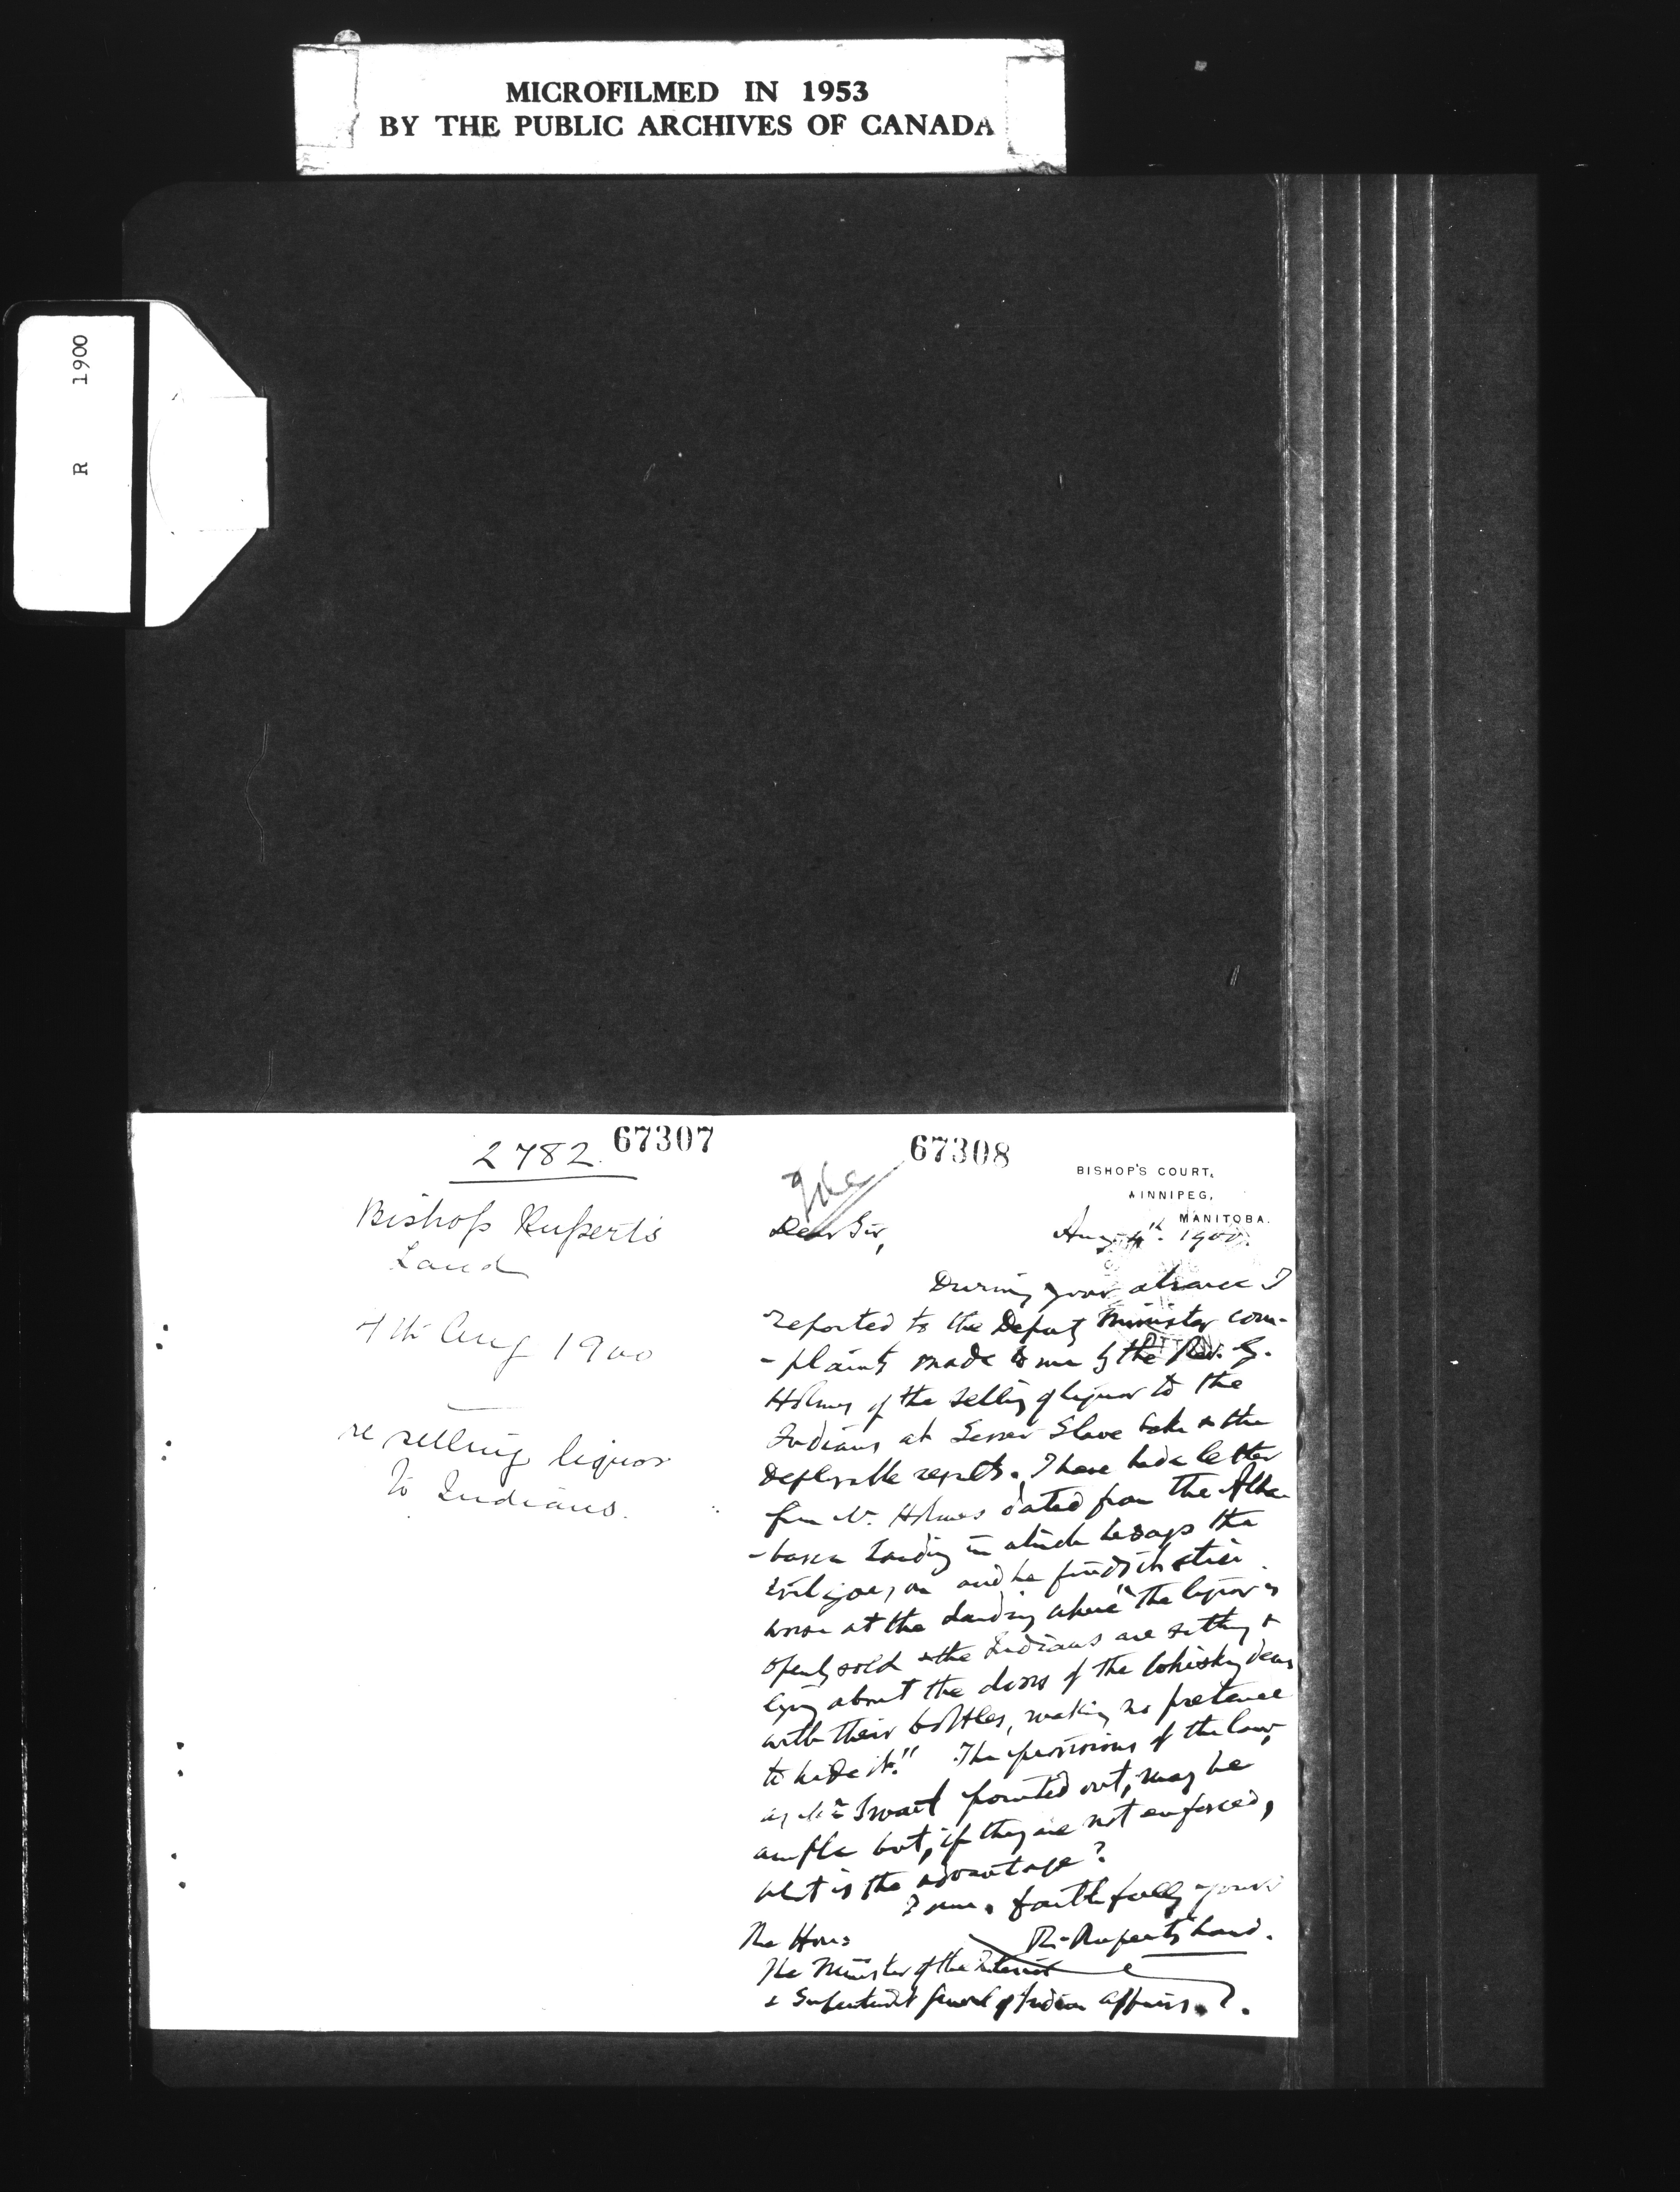 MICROFILMED IN 1953
BY THE PUBLIC ARCHIVES OF CANADA
R 1900
2782. 67307
Bishop Rupert's
Land
4th Aug 1900
re selling liquor
to Indians.
67308
BISHOP'S COURT,
WINNIPEG,
MANITOBA.
Dear Sir,
Aug 4th. 1900.
During your absence I
reported to the Deputy Minister com-
-plaints made to me by the Rev. G.
Holmes of the selling of liquor to the
Indians at Lesser Slave Lake & the
deplorable results. I have had a letter
from Mr. Holmes dated from the Atha-
-basca Landing in which he says the
evil goes on and he finds it still
worse at the Landing where "the liquor is
openly sold & the Indians are sitting &
lying about the doors of the whisky dens
with their bottles, making no pretence
to hide it." The provisions of the law,
as Mr Smart pointed out, may be
ample but, if they are not enforced,
what is the advantage?
I am, faithfully yours
R. Rupert's Land.
The Hon:
The Minister of the Interior
& Superintendt General of Indian Affairs.